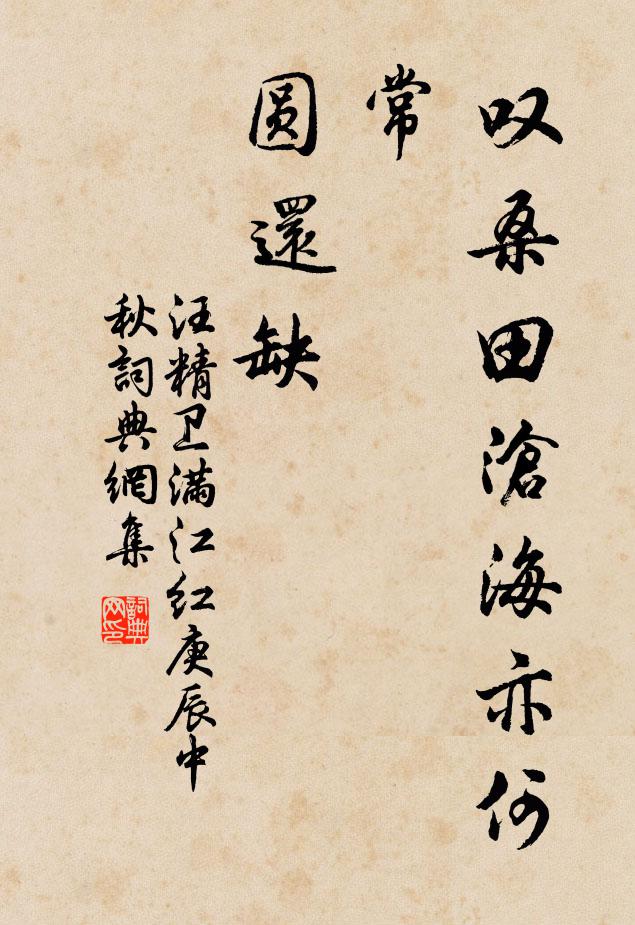 叹桑田滄海亦何
常
圆還缺
汪精卫满江红庚辰中
秋詞典網集
詞典网印